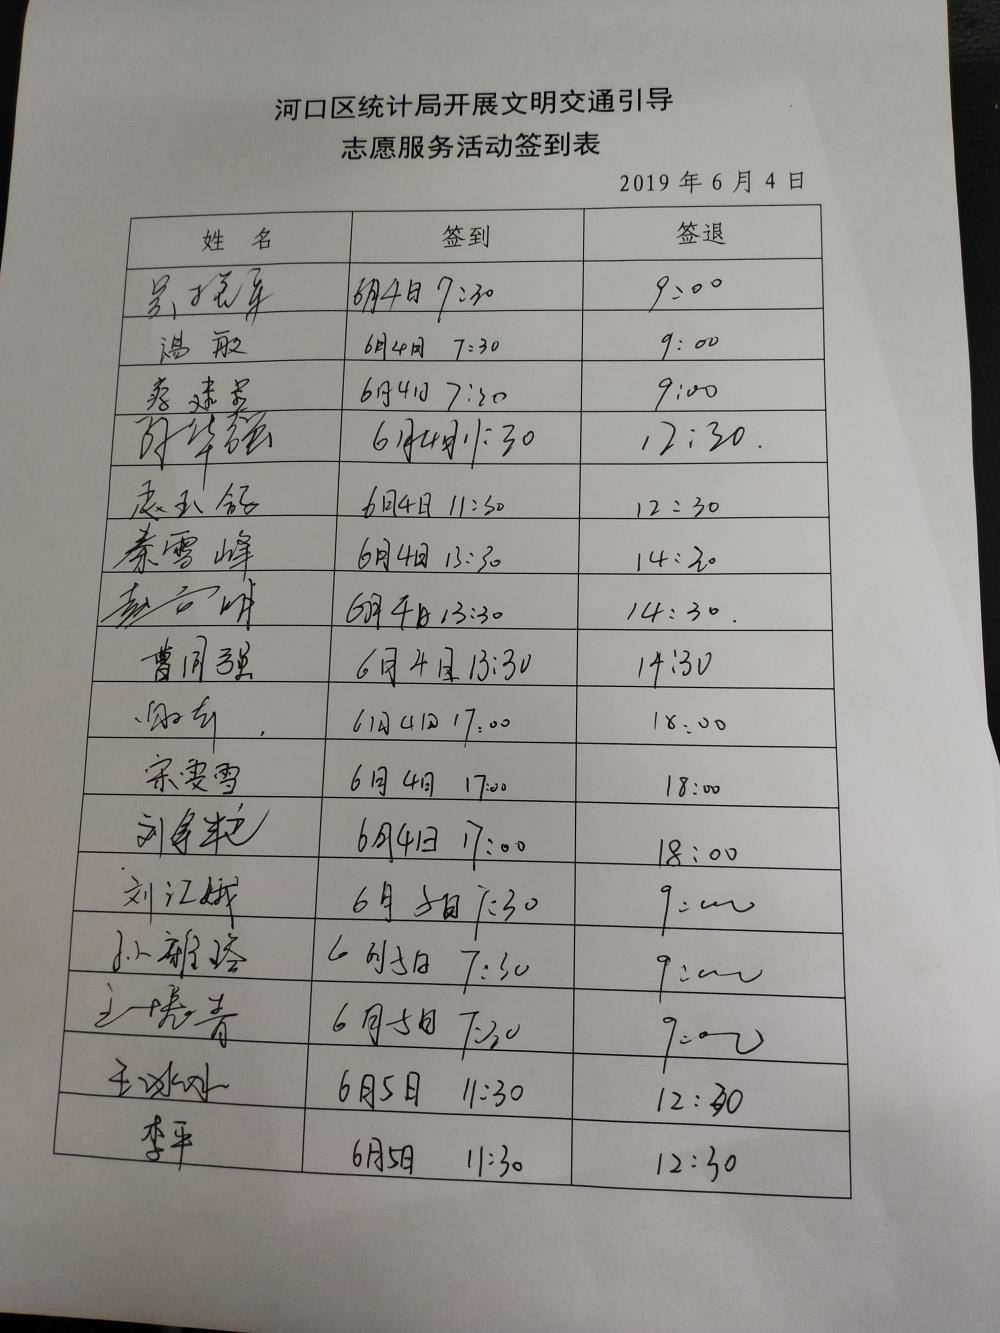 河口区统计局开展文明交通引导
志愿服务活动签到表
2019年6月4日
姓 名 签到 签退
6月4日 7:30 9:00
汤敏 6月4日 7:30 9:00
6月4日 7:30 9:00
6月4日 11:30 12:30.
6月4日 11:30 12:30
秦雪峰 6月4日 13:30 14:30
6月4日 13:30 14:30.
曹同强 6月4日 13:30 14:30
6月4日 17:00 18:00
宋雯雪 6月4日 17:00 18:00
刘 6月4日 17:00 18:00
刘江娥 6月5日 7:30 9:00
孙 6月5日 7:30 9:00
王 青 6月5日 7:30 9:00
王冰冰 6月5日 11:30 12:30
李平 6月5日 11:30 12:30